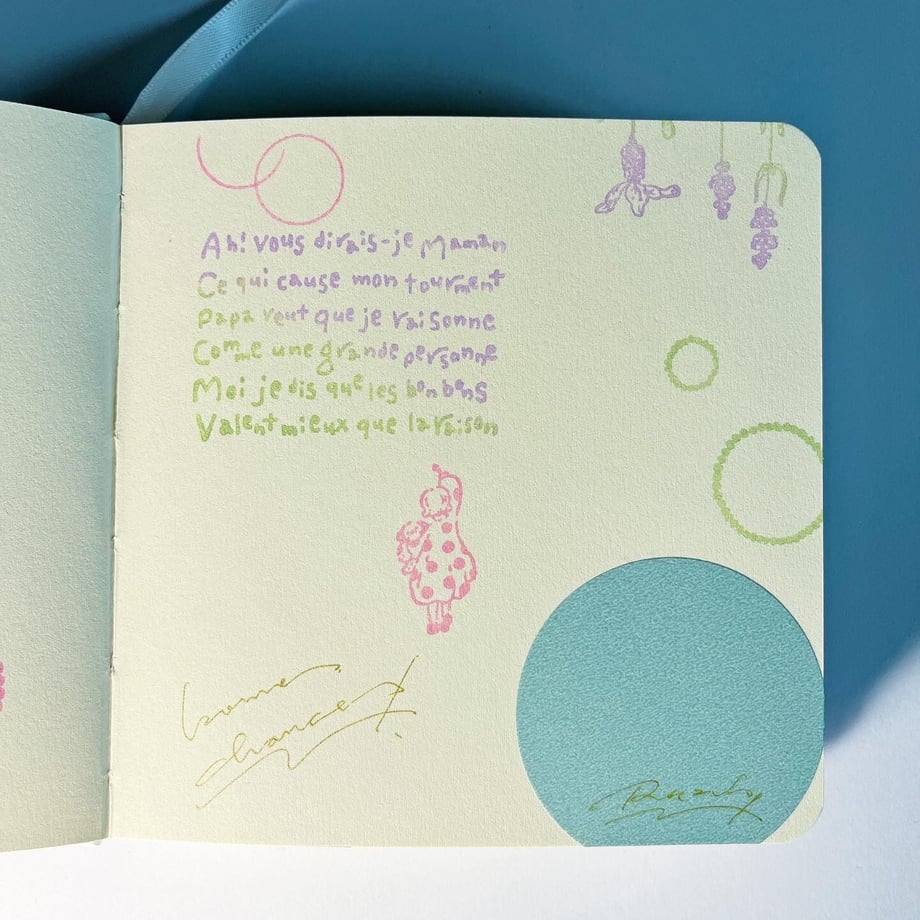 Ah! vous dirais-je Maman
Ce qui cause mon tourment
Papa veut que je raisonne
Comme une grande personne
Moi je dis que les bonbons
Valent mieux que la raison
bonne
chance!